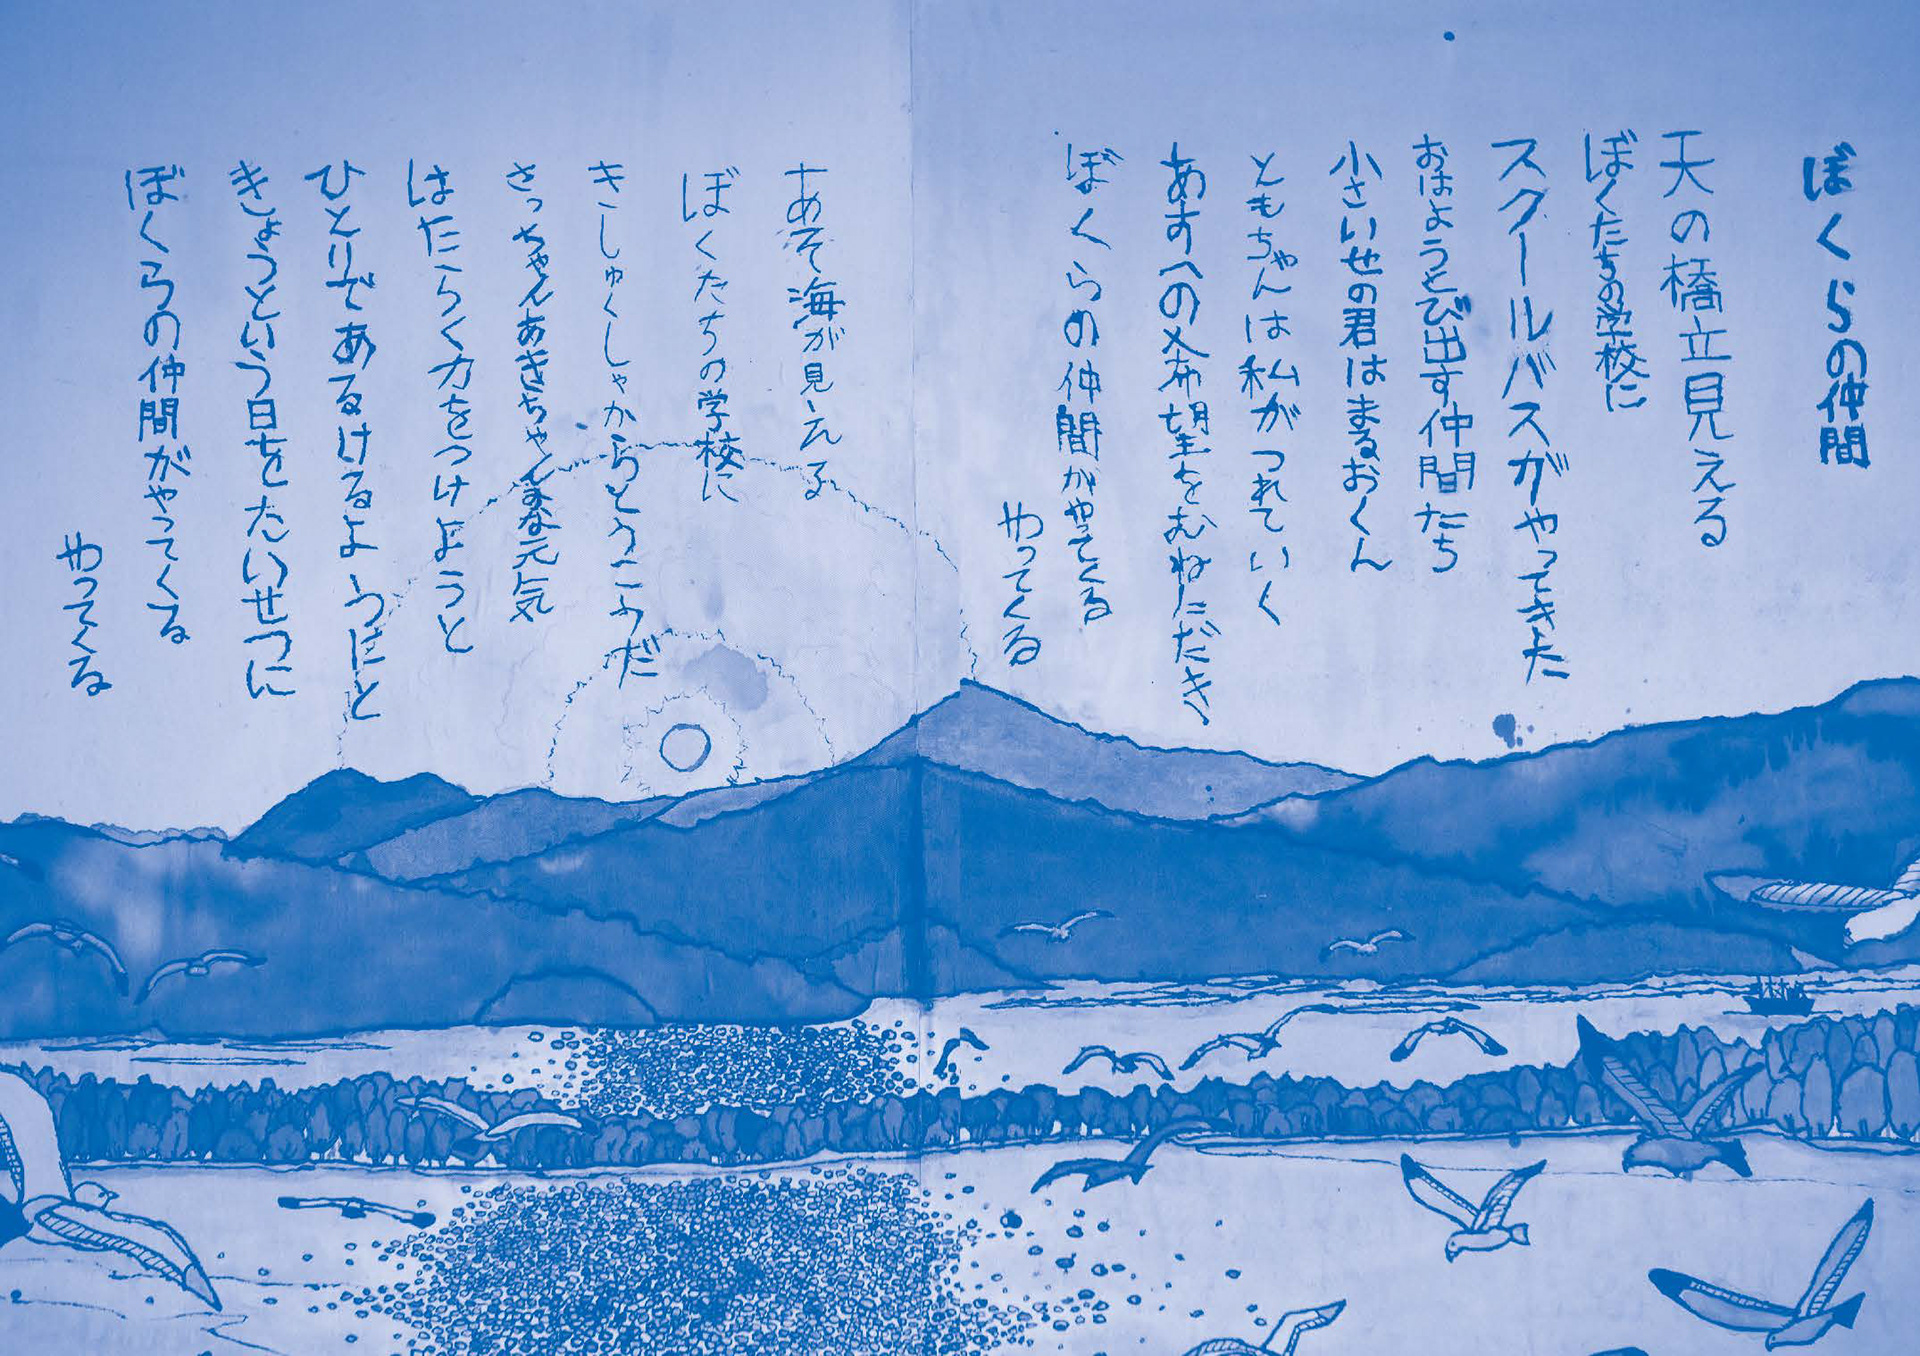 ぼくらの仲間
天の橋立見える
ぼくたちの学校に
スクールバスがやってきた
おはようとび出す仲間たち
小さいせの君はまるおくん
ともちゃんは私がつれていく
あすへの希望をむねにだき
ぼくらの仲間がやってくる
やってくる
あそ海が見える
ぼくたちの学校に
きしゅくしゃからとうこうだ
さっちゃんあきちゃんみな元気
はたらく力をつけようと
ひとりであるけるようにと
きょうという日をたいせつに
ぼくらの仲間がやってくる
やってくる